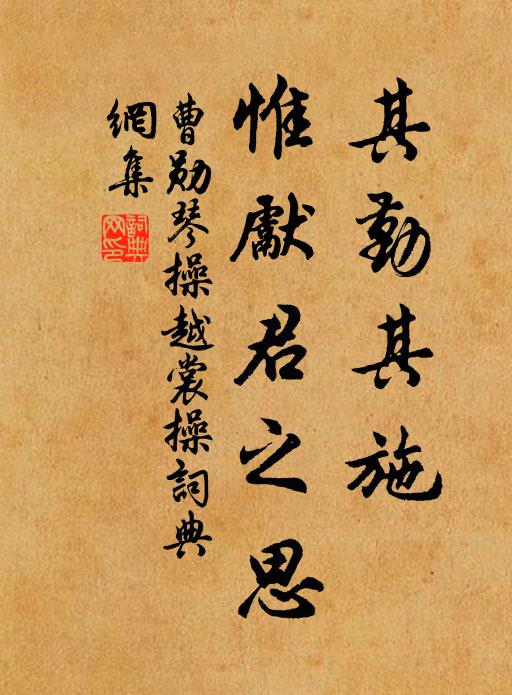 其勤其施
惟獻君之思
曹勛琴操越裳操詞典
網集
詞典網印